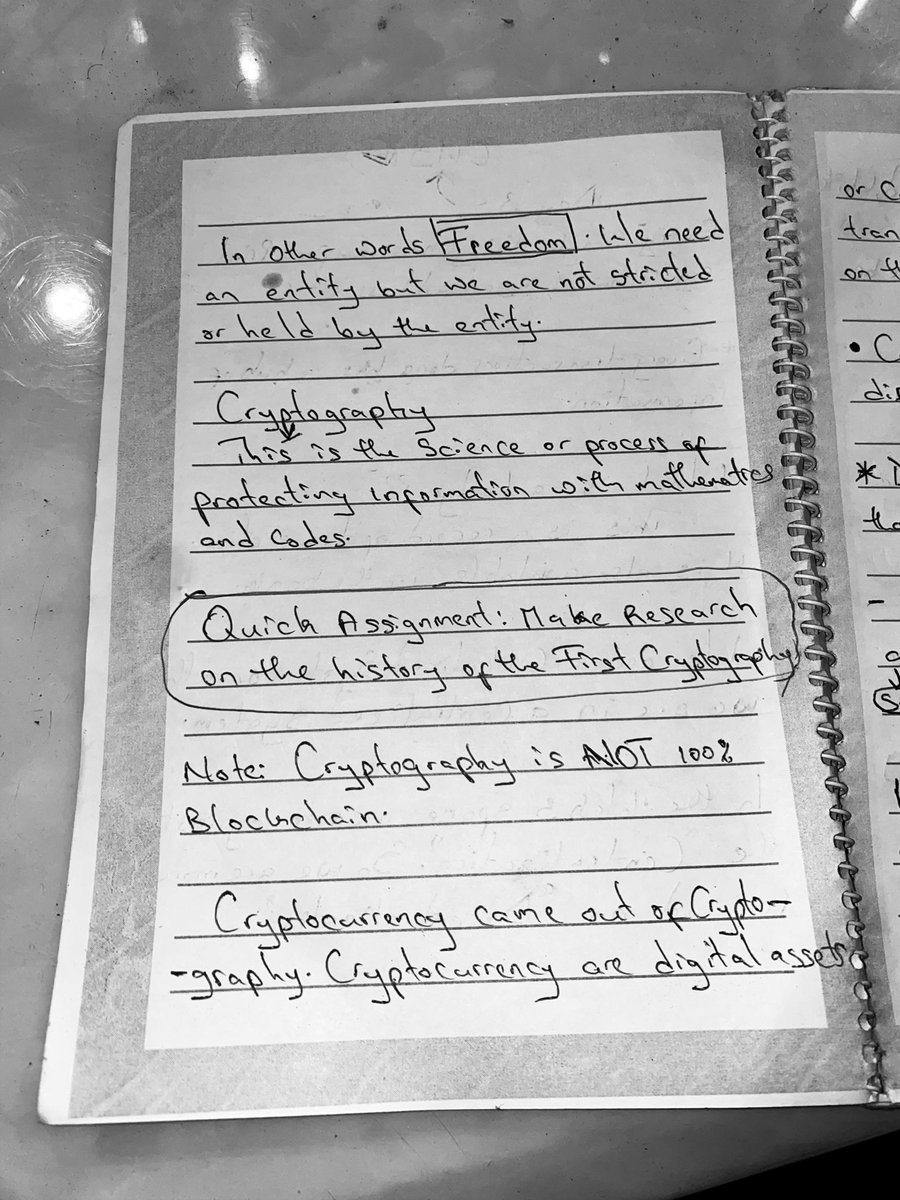 In other words Freedom. We need
an entity but we are not stricted
or held by the entity.
Cryptography
This is the Science or process of
protecting information with mathematics
and codes.
Quick Assignment: Make Research
on the history of the First Cryptography
Note: Cryptography is NOT 100%
Blockchain.
Cryptocurrency came out of Crypto-
-graphy. Cryptocurrency are digital assets
or C
tran
on th
• C
dis
*
tho
-